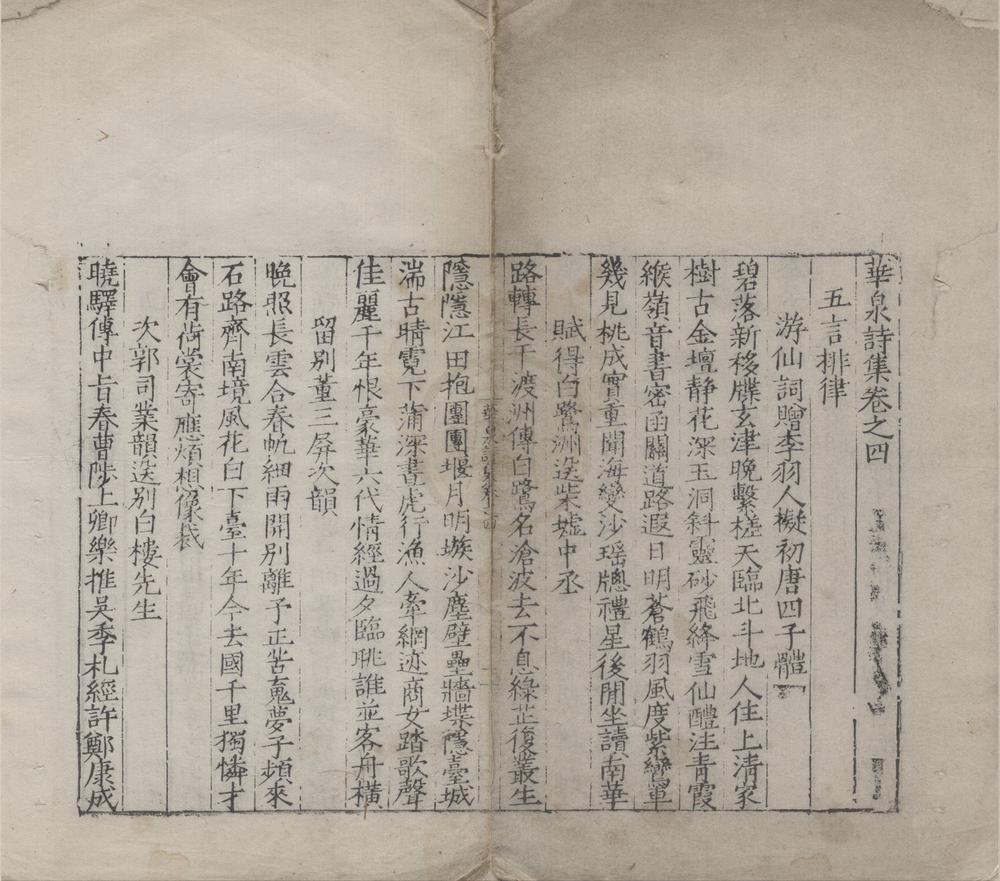 華泉詩集卷之四
五言排律
游仙詞贈李羽人擬初唐四子體
碧落新移牒玄津晚繫槎天臨北斗地人住上清家
樹古金壇静花深玉洞斜靈砂飛絳雪仙醴注青霞
緱嶺音書密函關道路遐日明蒼鶴羽風度紫鸞軍
幾見桃成實重聞海變沙瑶牕禮星後閒坐讀南華
賦得白鷺洲送柴墟中丞
路轉長干渡洲傳白鷺名滄波去不息綠芷復叢生
華泉詩集卷之四
隱隱江田抱團團堰月明塲沙塵壁壘牆堞隱臺城
湍古晴霓下蒲深晝虎行漁人牽網迹商女踏歌聲
佳麗千年恨豪華六代情經過夕臨眺誰並客舟橫
留别董三屏次韻
晚照長雲合春帆細雨開别離予正苦䰟夢子頻來
石路齊南境風花白下臺十年今去國千里獨憐才
會有荷裳寄應煩想像裁
次郭司業韻送别白樓先生
曉驛傳中旨春曹陟上卿樂推吳季札經許鄭康成